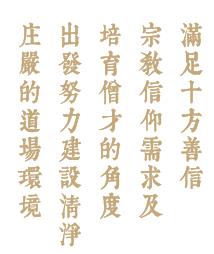 滿足十方善信
宗教信仰需求及
培育僧才的角度
出發努力建設清淨
庄嚴的道場環境